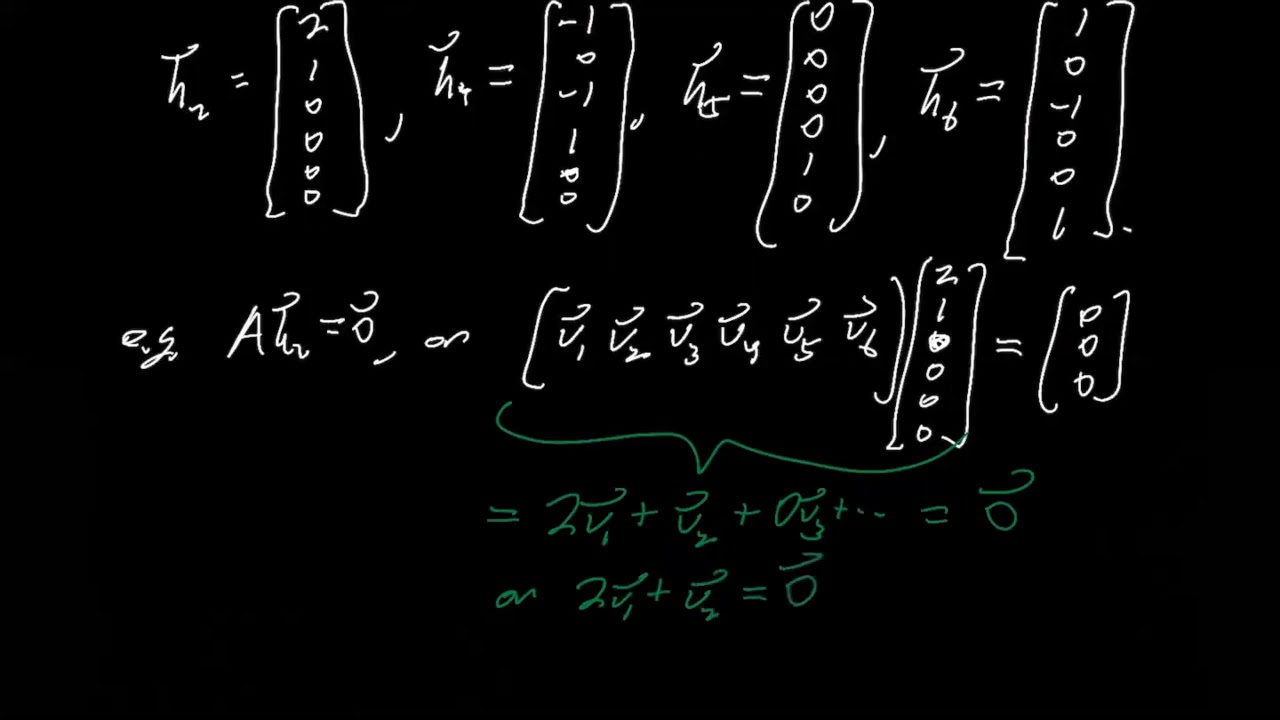 h⃗₂ = [2 1 0 0 0 0], h⃗₄ = [-1 0 -1 1 0 0], h⃗₅ = [0 0 0 0 1 0], h⃗₆ = [1 0 -1 0 0 1].
e.g. Ah⃗₂ = 0⃗, or [v⃗₁ v⃗₂ v⃗₃ v⃗₄ v⃗₅ v⃗₆] [2 1 0 0 0 0] = [0 0 0]
= 2v⃗₁ + v⃗₂ + 0v⃗₃ + ⋯ = 0⃗
or 2v⃗₁ + v⃗₂ = 0⃗